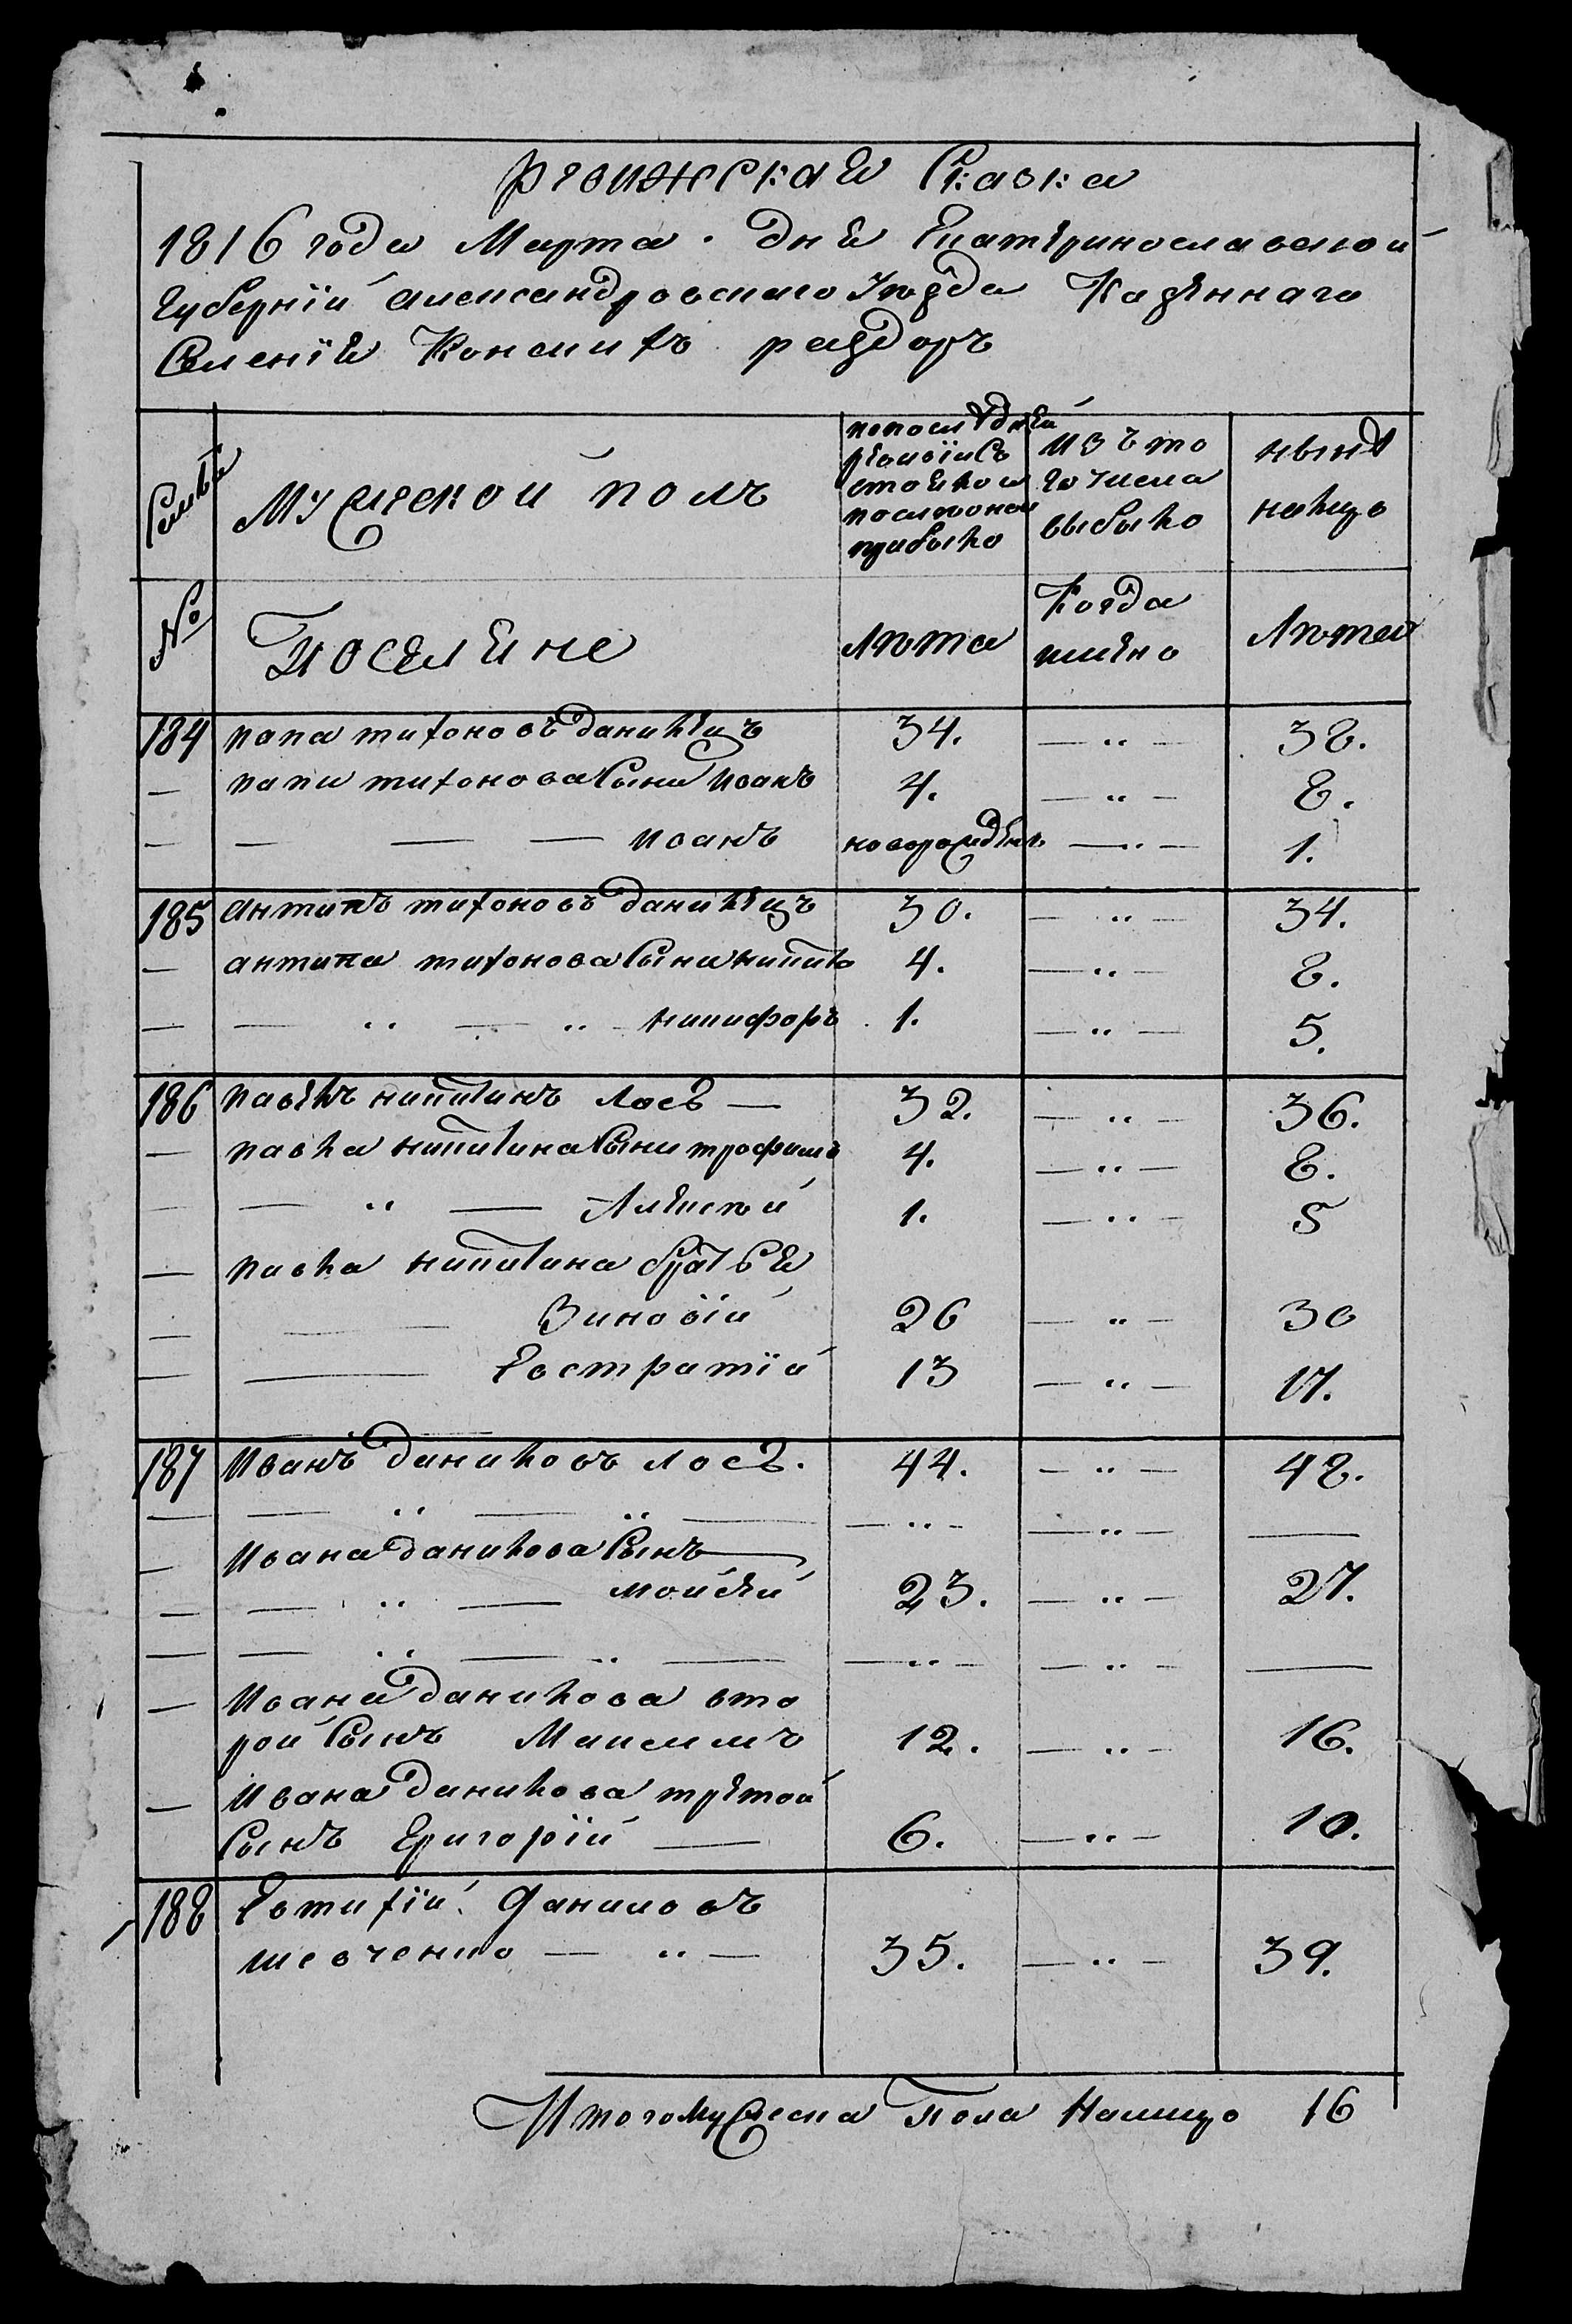 ревижская Скаска
1816 года Марта . дня Екатеринославской
Губернїи александровскаго Уѣзда Казеннаго
Селенїя Конскихъ раздоръ
Семьи
Мужеской полъ
попоследней ревизїи Состояло и после оной прибыло
изъ того числа выбыло
нынѣ налицо
№
Поселяне
лѣта
Когда имяно
Лѣтаи
184 папа тихоновъ данилецъ 34. — „ — 38.
— папи тихонова Сыни иванъ 4. — „ — 8.
— — — — иванъ новорожденъ — „ — 1.
185 Антипъ тихоновъ данилецъ 30. — „ — 34.
— антипа тихонова Сыни никита 4. — „ — 8.
— — „ — „ — никифоръ 1. — „ — 5.
186 павелъ никитинъ лось — 32. — „ — 36.
— павла никитина Сыни трофимъ 4. — „ — 8.
— — „ — Алексѣй 1. — „ — 5
— павла никитина братья
— — — Зиновїй 26 — „ — 30
— — Евстратїй 13 — „ — 17.
187 Иванъ даниловъ лось. 44. — „ — 48.
— — „ — „ — — „ — — „ — —
— Ивана данилова Сынъ —
— — „ — мойсей 23. — „ — 27.
— — „ — „ — — „ — — „ — —
— Ивана данилова вто
рой Сынъ Максимъ 12. — „ — 16.
— Ивана данилова третой
Сынъ Григорїй — 6. — „ — 10.
188 Евтихїй Даниловъ
шевченко — „ — 35. — „ — 39.
Итого Мужеска Пола Налицо 16